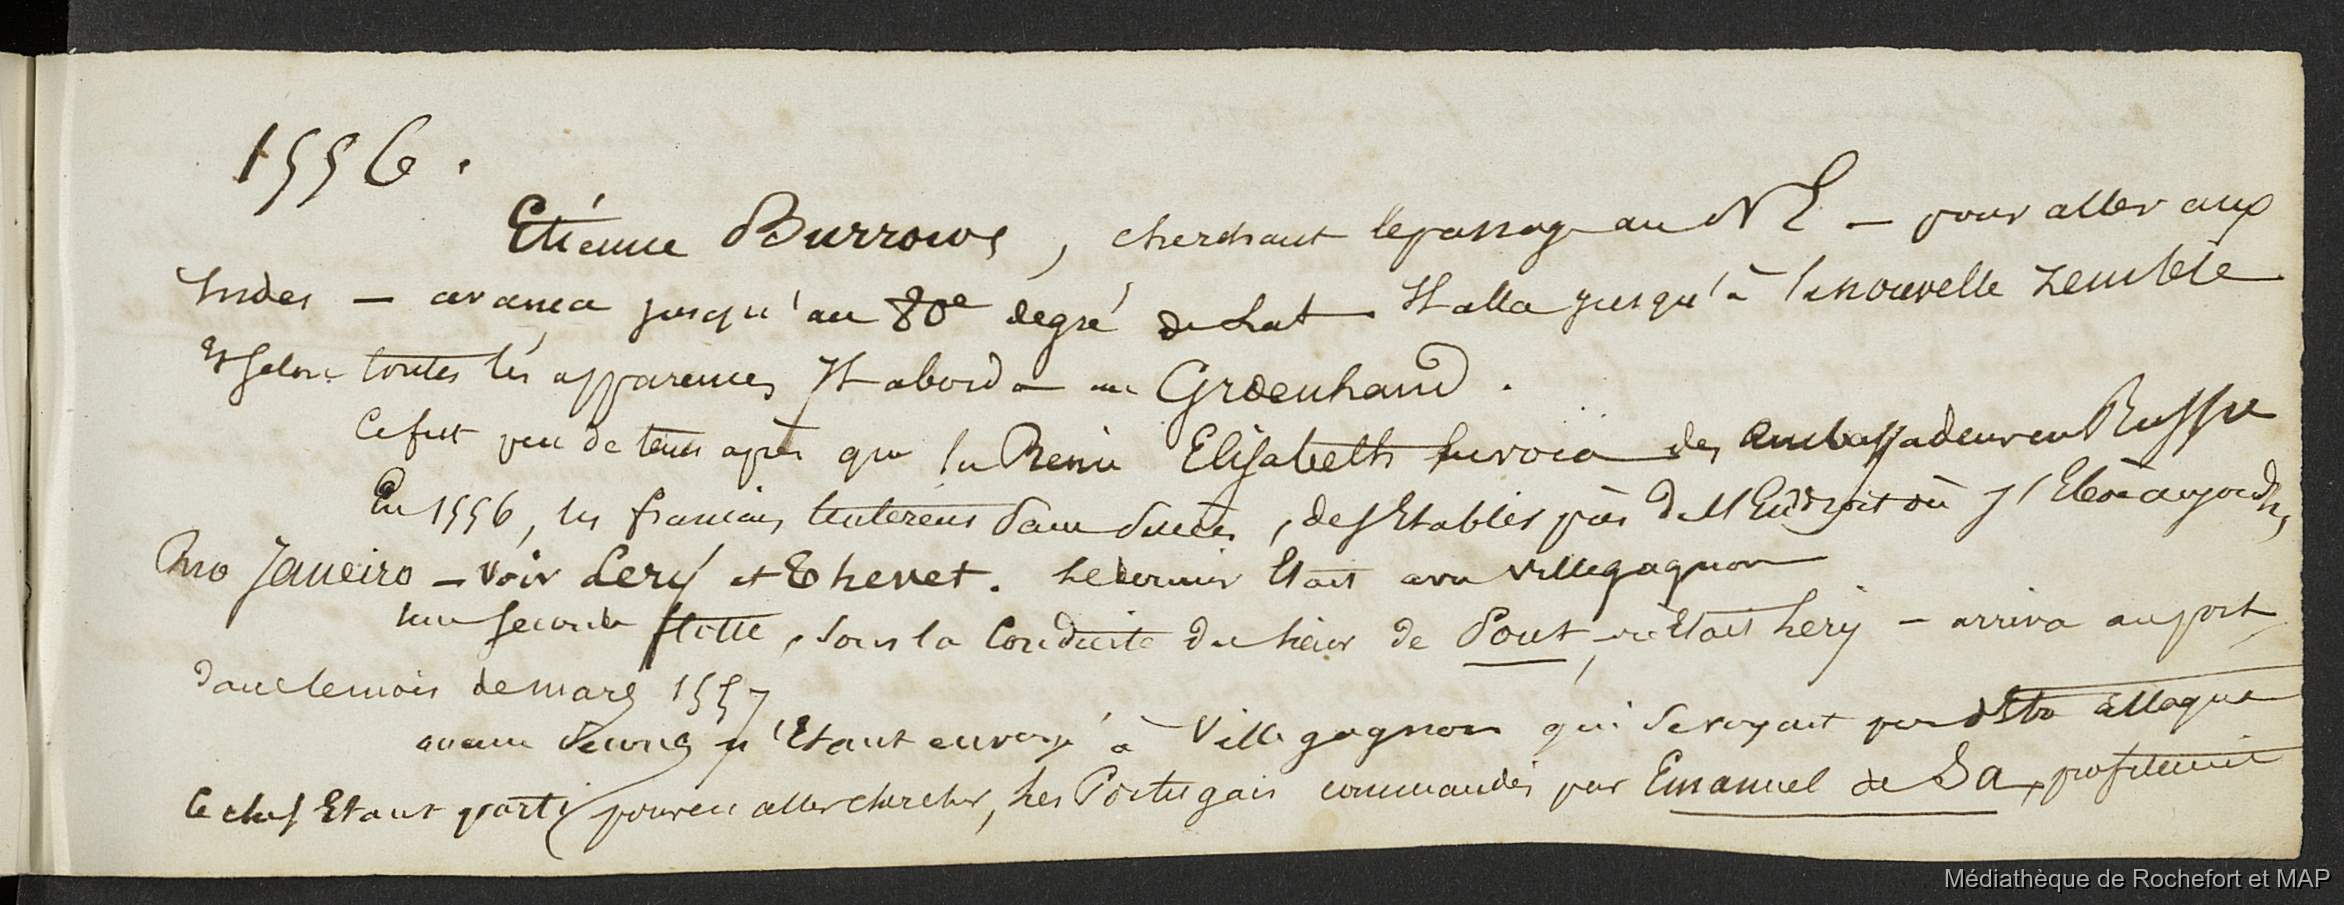 1556.
Etiénne Burrows, cherchant le passage au NE – pour aller aux
Indes – avança jusqu'au 80e degré de Lat. Il alla jusqu'à la nouvelle Zemble
Et Selon toutes les apparences Il aborda au Groenland.
Ce fut peu de tems après que la Reine Elisabeth Envoia des ambassadeurs en Russie
En 1556, les francais tenterent Sans Succès, de s'Etablir près de l'Endroit où
Rio Janeiro – Voir Lery et Thevet. Le dernier Etait avec Villegagnon
une Seconde flotte, Sous la Conduite du Sieur de Pont, où Etait Lery – arriva au port
dans le mois de mars 1557
aucun Secours n'Etant envoyé à Villegagnon qui Se voyait par
Ce chef Etant parti pour en aller chercher, les Portugais commandés par Emanuel de Sa, profiterent
Médiathèque de Rochefort et MAP